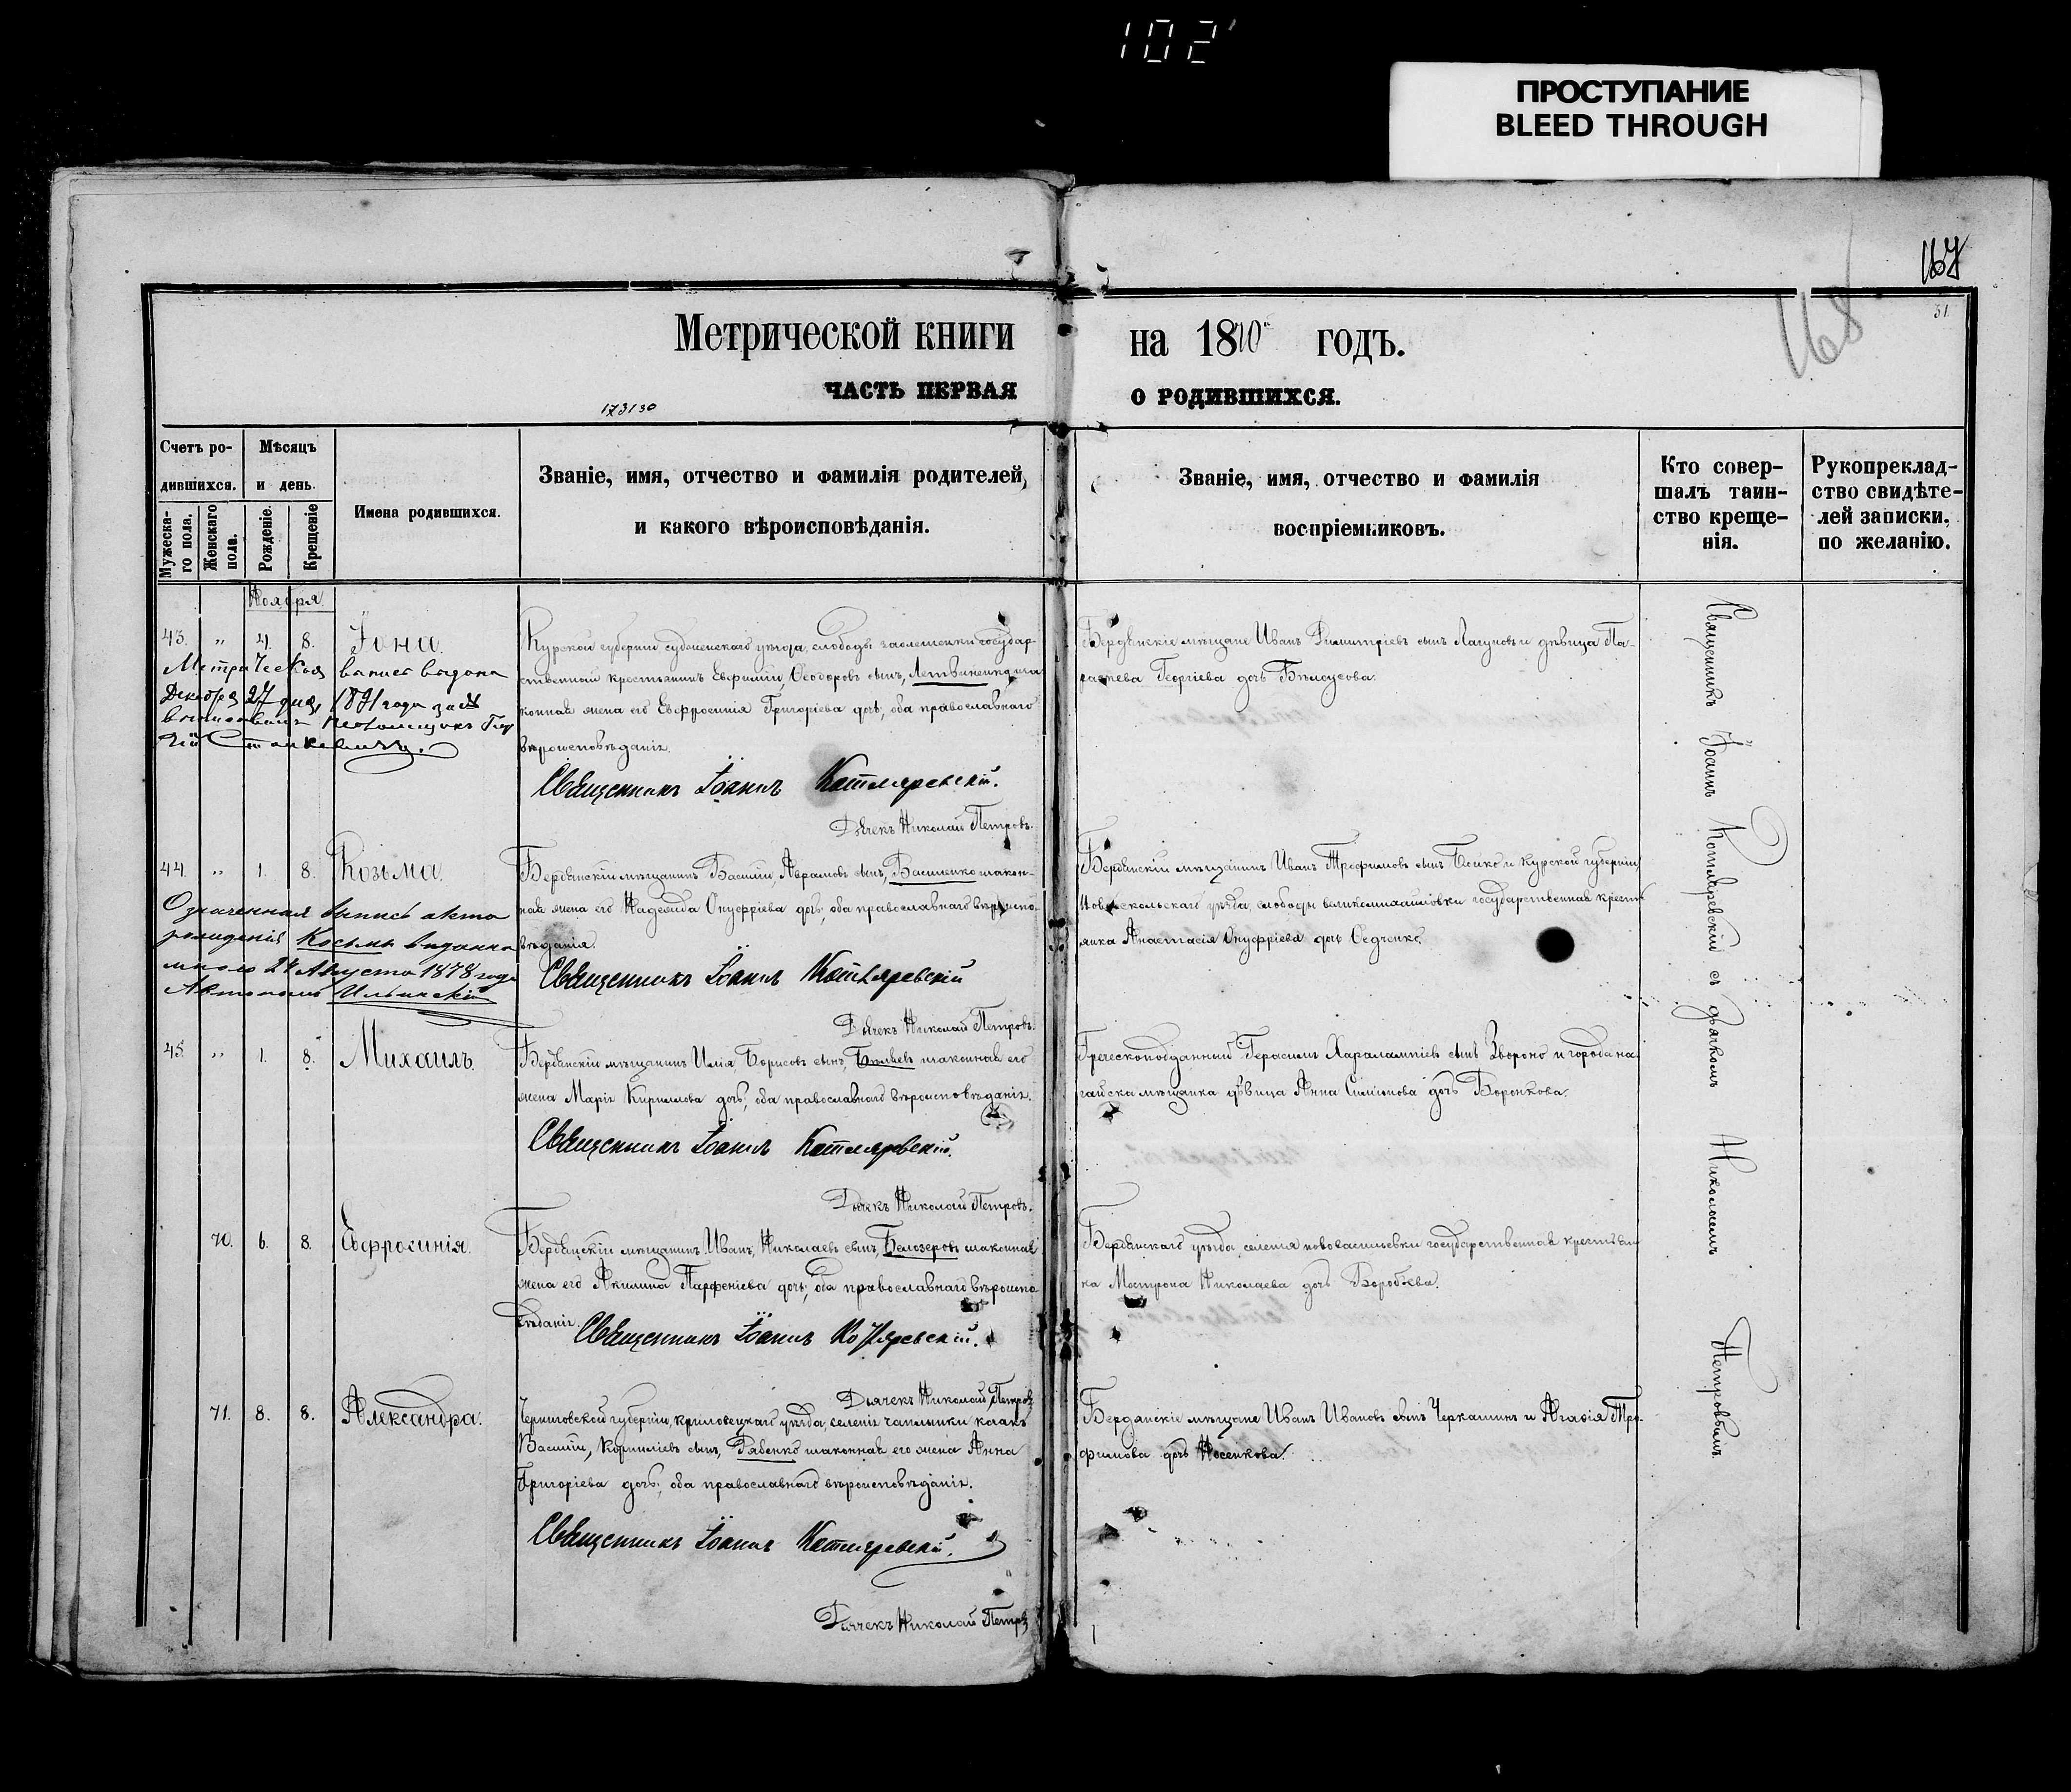 102
ПРОСТУПАНИЕ
BLEED THROUGH
167
168
31
Метрической книги на 1870 годъ.
ЧАСТЬ ПЕРВАЯ О РОДИВШИХСЯ.
173130
Счетъ родившихся.
Мужескаго пола.
Женскаго пола.
Мѣсяцъ и день.
Рожденіе.
Крещеніе
Имена родившихся.
Званіе, имя, отчество и фамилія родителей,
и какого вѣроисповѣданія.
Званіе, имя, отчество и фамилія
воспріемниковъ.
Кто совер-
шалъ таин-
ство креще-
нія.
Рукопреклад-
ство свидѣте-
лей записки,
по желанію.
Ноября
43. " 4. 8. Іона.
Метрическая выпись выдана
Декабря 27 дня, 1891 года за №
Курской губерніи, судженскаго уѣзда, слободы государ-
ственный крестьянинъ Евфимій, Ѳеодоровъ сынъ, Литвиненко и за
конная жена его Евфросинія Григоріева дочь; оба православнаго
вѣроисповѣданія.
Священникъ Іоаннъ Котляревскій.
Дьячекъ Николай Петровъ.
Бердянскіе мѣщане Иванъ Димитріевъ сынъ Лагуновъ и дѣвица Па-
раскева Георгіева дочь Бѣлоусова.
44. " 1. 8. Козьма.
Означенная выпись акта
рожденія Косьмы выдана
мною 24 Августа 1878 года
Ильинскій
Бердянскій мѣщанинъ Василій, Аврамовъ сынъ, Василенко и закон-
ная жена его Надежда Онуфріева дочь; оба православнаго вѣроиспо-
вѣданія.
Священникъ Іоаннъ Котляревскій
Дьячекъ Николай Петровъ.
Бердянскій мѣщанинъ Иванъ Трофимовъ сынъ Бойко и курской губерніи,
новооскольскаго уѣзда, слободы великомихайловки государственная кресть-
янка Анастасія Онуфріева дочь Федченко.
45. " 1. 8. Михаилъ.
Бердянскій мѣщанинъ Илія Борисовъ сынъ, Бѣляевъ и законная его
жена Марія Кириллова дочь; оба православнаго вѣроисповѣданія.
Священникъ Іоаннъ Котляревскій.
Дьячекъ Николай Петровъ.
Греческоподданный Герасимъ Харалампіевъ сынъ Звороно и города но-
гайска мѣщанка дѣвица Анна Симонова дочь Воронкова.
70. 6. 8. Евфросинія.
Бердянскій мѣщанинъ Иванъ, Николаевъ сынъ, Белозеровъ и законная
жена его Акилина Парфеніева дочь; оба православнаго вѣроиспо
вѣданія.
Священникъ Іоаннъ Котляревскій.
Дьячекъ Николай Петровъ
Бердянскаго уѣзда, селенія нововасильевки государственная крестьян-
ка Матрона Николаева дочь Воробьева.
71. 8. 8. Александра.
Черниговской губерніи, кролевецкаго уѣзда, селенія чаплыжки козакъ
Василій, Корниліевъ сынъ, Рябенко и законная его жена Анна
Григоріева дочь; оба православнаго вѣроисповѣданія.
Священникъ Іоаннъ Котляревскій.
Дьячекъ Николай Петровъ
Бердянскіе мѣщане Иванъ Ивановъ сынъ Черкашинъ и Агафія Тро-
фимова дочь Носенкова.
Священникъ Іоаннъ Котляревскій съ дьячкомъ Николаемъ Петровымъ